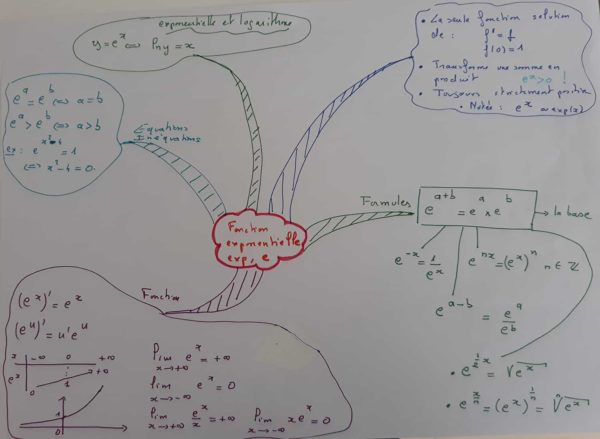 exponentielle et logarithme
y = e^x ⇔ ln y = x
• La seule fonction solution
de : f' = f
f(0) = 1
• Transforme une somme en
produit e^x > 0 !
• Toujours strictement positive
• Notée : e^x ou exp(x)
e^a = e^b ⇔ a = b
e^a > e^b ⇔ a > b
ex : e^{x²-4} = 1
⇔ x² - 4 = 0.
Équations
Inéquations
Fonction
exponentielle
exp, e
Formules
e^{a+b} = e^a × e^b → la base
e^{-x} = 1/e^x e^{nx} = (e^x)^n n ∈ ℤ
e^{a-b} = e^a/e^b
• e^{½x} = √e^x
• e^{x/n} = (e^x)^{1/n} = ⁿ√e^x
Fonction
(e^x)' = e^x
(e^u)' = u'e^u
x -∞ 0 +∞
e^x 0 1 +∞
1
0
lim x→+∞ e^x = +∞
lim x→-∞ e^x = 0
lim x→+∞ e^x/x = +∞ lim x→-∞ x e^x = 0